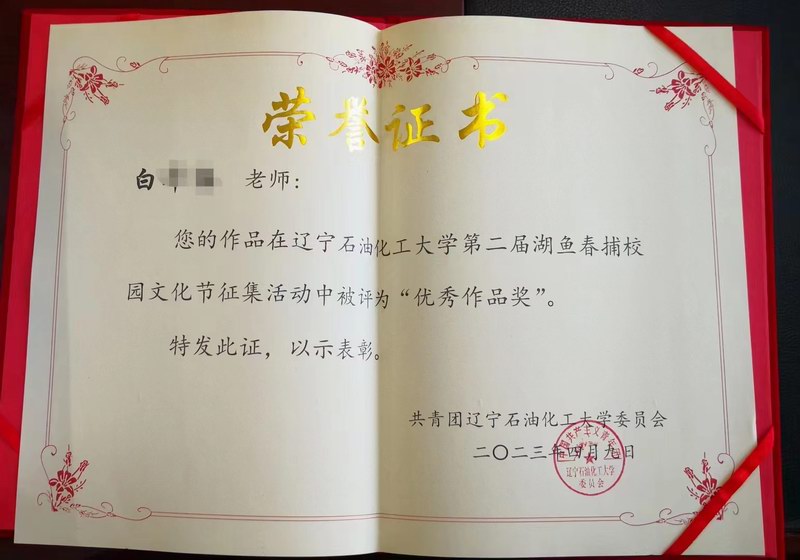 荣誉证书
白 老师：
您的作品在辽宁石油化工大学第二届湖鱼春捕校
园文化节征集活动中被评为“优秀作品奖”。
特发此证，以示表彰。
共青团辽宁石油化工大学委员会
二〇二三年四月九日
中国共产主义青年团
辽宁石油化工大学
委员会